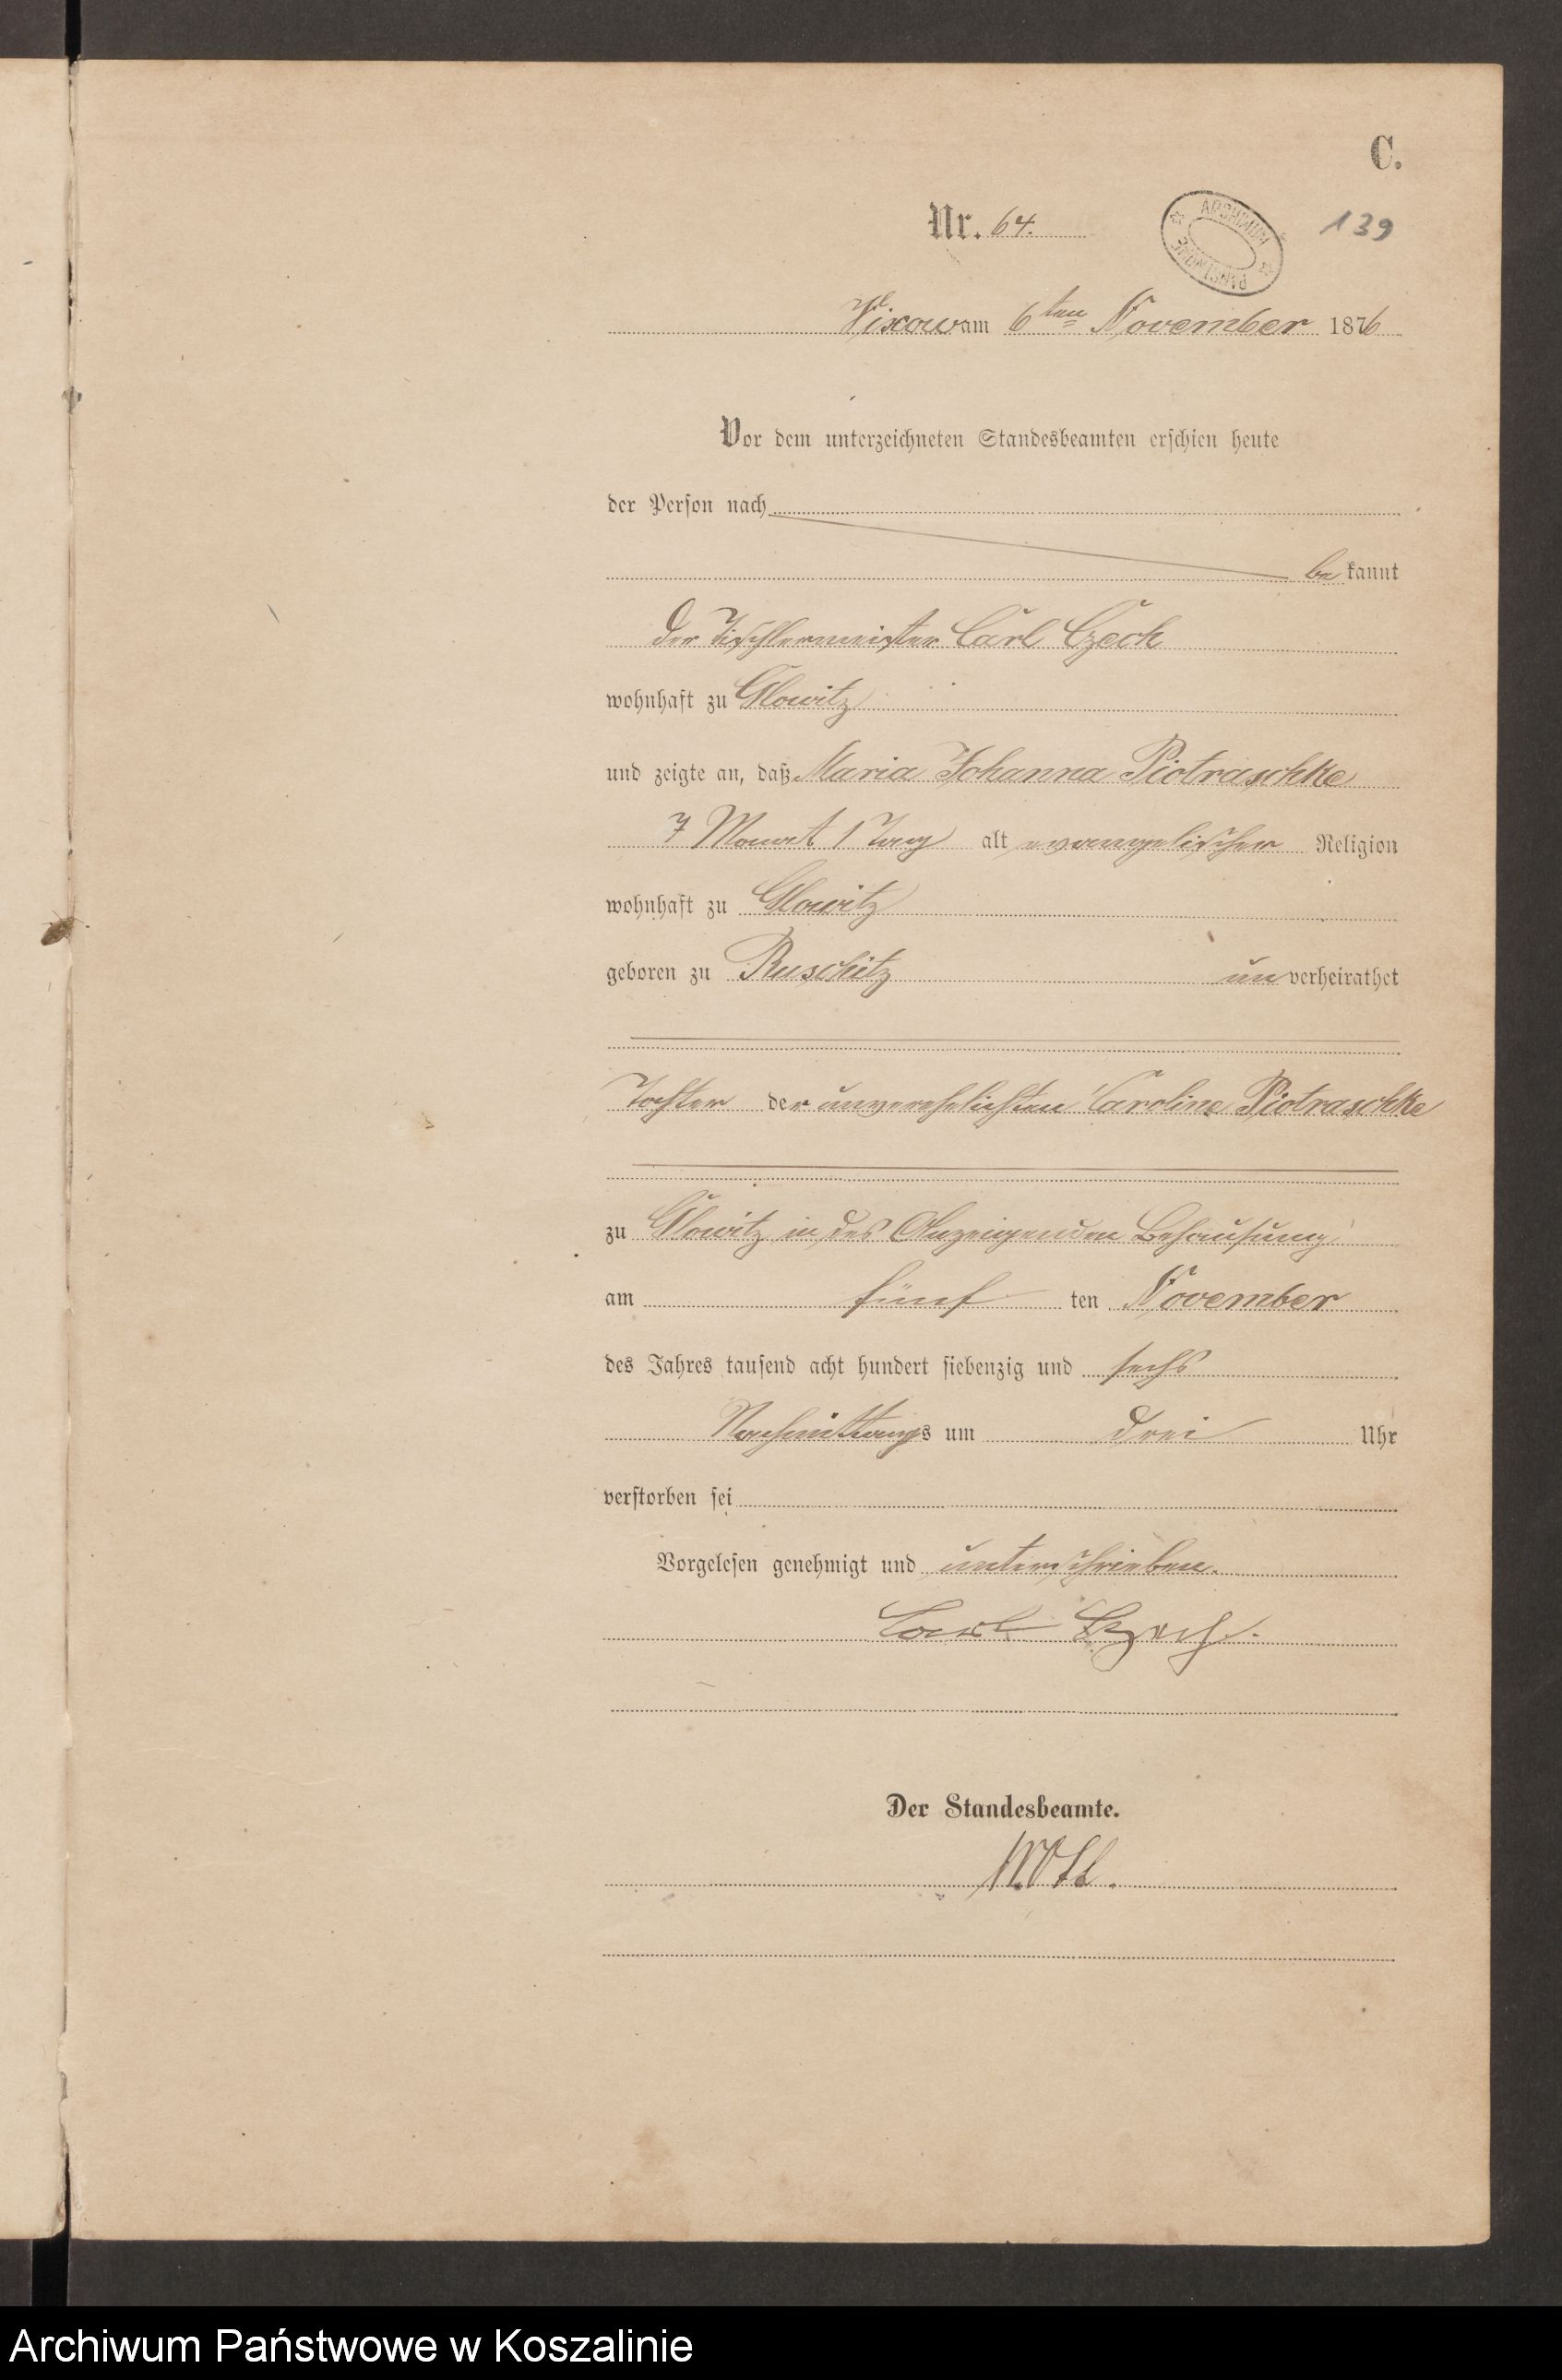 C.
Nr. 64.
ARCHIWUM PAŃSTWOWE
139
Vixow am 6ten November 1876
Vor dem unterzeichneten Standesbeamten erschien heute
der Person nach
be kannt
der Tischlermeister Carl Czech
wohnhaft zu Glowitz
und zeigte an, daß Maria Johanna Piotraschke
7 Monat 1 Tag alt evangelischer Religion
wohnhaft zu Glowitz
geboren zu Ruschitz un verheirathet
Tochter der unverehelichten Caroline Piotraschke
zu Glowitz in des Anzeigenden Behausung
am fünf ten November
des Jahres tausend acht hundert siebenzig und sechs
Nachmittags um drei Uhr
verstorben sei
Vorgelesen genehmigt und unterschrieben.
Carl Czech.
Der Standesbeamte.
Archiwum Państwowe w Koszalinie